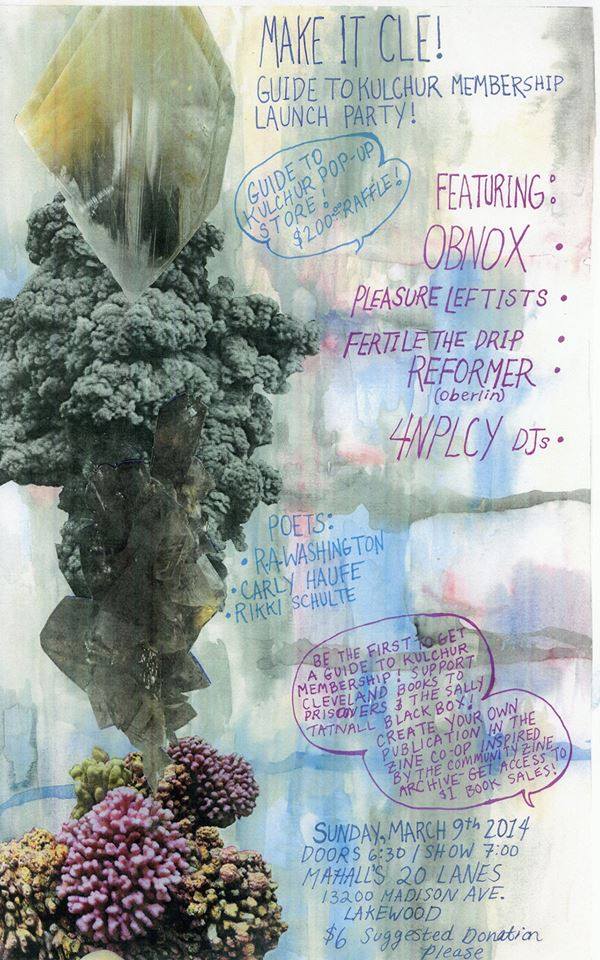 MAKE IT CLE!
GUIDE TO KULCHUR MEMBERSHIP
LAUNCH PARTY!
GUIDE TO
KULCHUR POP-UP
STORE!
$200.00 RAFFLE!
FEATURING:
OBNOX •
PLEASURE LEFTISTS •
FERTILE THE DRIP •
REFORMER •
(oberlin)
4NPLCY DJs •
POETS:
• R.A. WASHINGTON
• CARLY HAUFE
• RIKKI SCHULTE
BE THE FIRST TO GET
A GUIDE TO KULCHUR
MEMBERSHIP! SUPPORT
CLEVELAND BOOKS TO
PRISONERS & THE SALLY
TATNALL BLACK BOX!
CREATE YOUR OWN
PUBLICATION IN THE
ZINE CO-OP INSPIRED
BY THE COMMUNITY ZINE
ARCHIVE - GET ACCESS TO
$1 BOOK SALES!
SUNDAY, MARCH 9th 2014
DOORS 6:30 / SHOW 7:00
MAHALL'S 20 LANES
13200 MADISON AVE.
LAKEWOOD
$6 Suggested Donation
Please